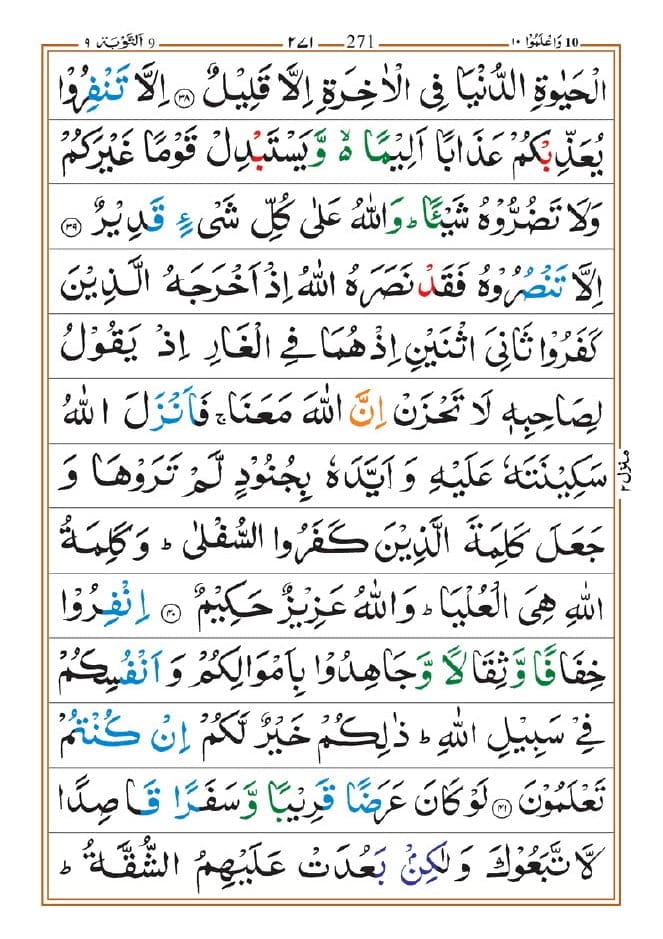 10 وَاعْلَمُوْٓا ١٠ 271 ٢٧١ 9 اَلتَّوْبَة ٩
الْحَيٰوةِ الدُّنْيَا فِي الْاٰخِرَةِ اِلَّا قَلِيْلٌ ۝٣٨ اِلَّا تَنْفِرُوْا
يُعَذِّبْكُمْ عَذَابًا اَلِيْمًا ۙ وَّيَسْتَبْدِلْ قَوْمًا غَيْرَكُمْ
وَلَا تَضُرُّوْهُ شَيْـًٔا ؕ وَاللّٰهُ عَلٰى كُلِّ شَيْءٍ قَدِيْرٌ ۝٣٩
اِلَّا تَنْصُرُوْهُ فَقَدْ نَصَرَهُ اللّٰهُ اِذْ اَخْرَجَهُ الَّذِيْنَ
كَفَرُوْا ثَانِيَ اثْنَيْنِ اِذْ هُمَا فِي الْغَارِ اِذْ يَقُوْلُ
لِصَاحِبِهٖ لَا تَحْزَنْ اِنَّ اللّٰهَ مَعَنَا ۚ فَاَنْزَلَ اللّٰهُ
سَكِيْنَتَهٗ عَلَيْهِ وَ اَيَّدَهٗ بِجُنُوْدٍ لَّمْ تَرَوْهَا وَ
جَعَلَ كَلِمَةَ الَّذِيْنَ كَفَرُوا السُّفْلٰى ؕ وَكَلِمَةُ
اللّٰهِ هِيَ الْعُلْيَا ؕ وَاللّٰهُ عَزِيْزٌ حَكِيْمٌ ۝٤٠ اِنْفِرُوْا
خِفَافًا وَّثِقَالًا وَّجَاهِدُوْا بِاَمْوَالِكُمْ وَاَنْفُسِكُمْ
فِيْ سَبِيْلِ اللّٰهِ ؕ ذٰلِكُمْ خَيْرٌ لَّكُمْ اِنْ كُنْتُمْ
تَعْلَمُوْنَ ۝٤١ لَوْ كَانَ عَرَضًا قَرِيْبًا وَّسَفَرًا قَاصِدًا
لَّاتَّبَعُوْكَ وَلٰكِنْۢ بَعُدَتْ عَلَيْهِمُ الشُّقَّةُ ؕ
منزل ٢